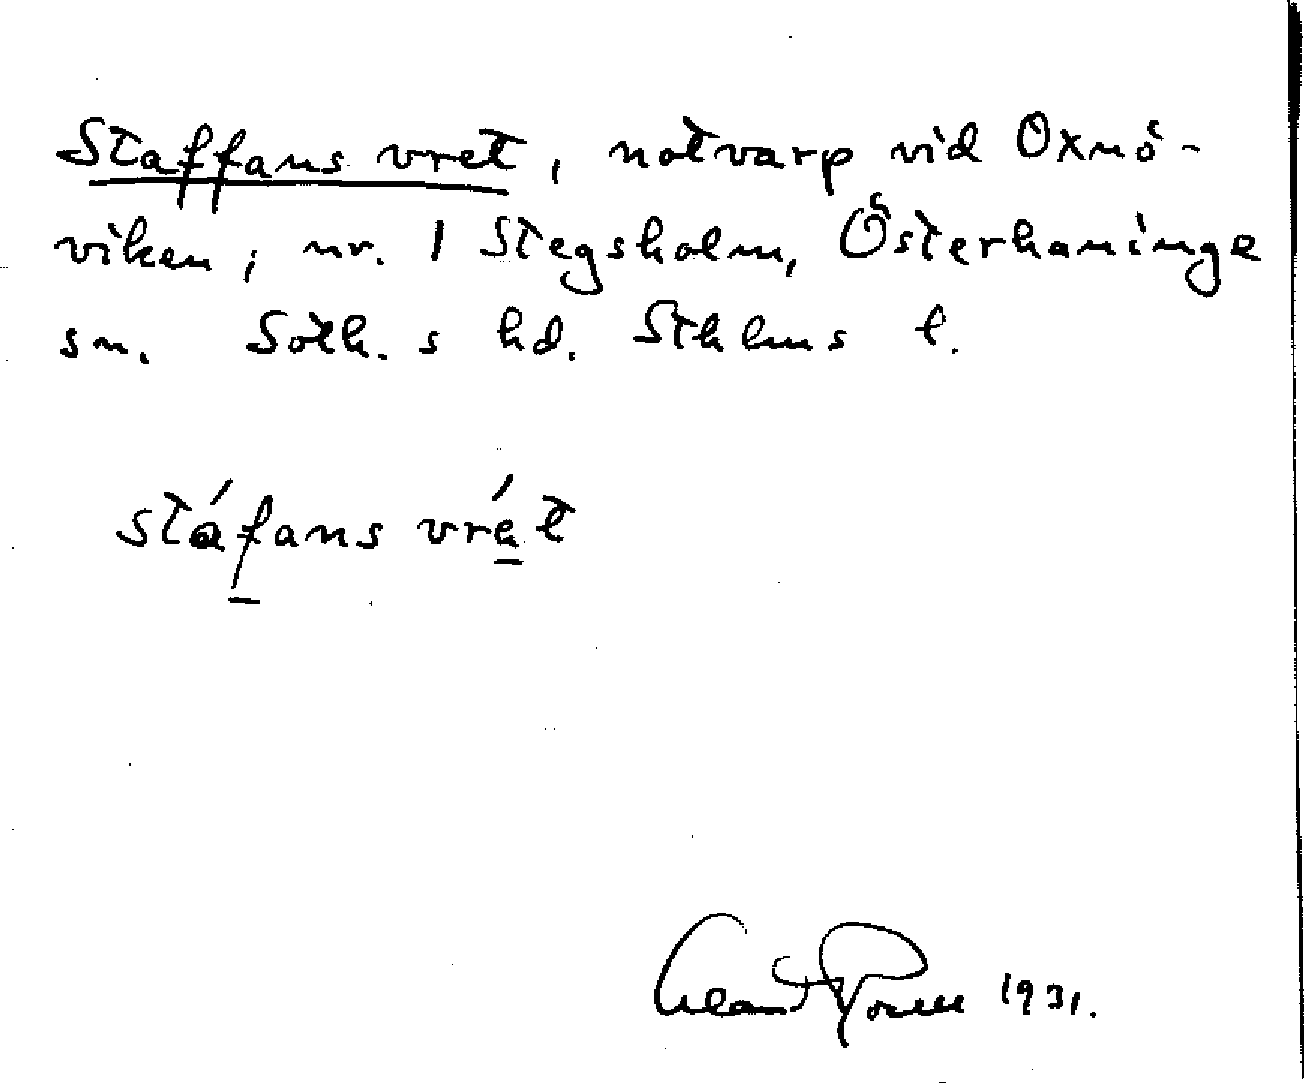 Staffans vret, notvarp vid Oxnö-
viken, nr. 1 Stegsholm, Österhaninge
sn. Soth.s hd. Sthlms l.
stáfans vrét
1931.